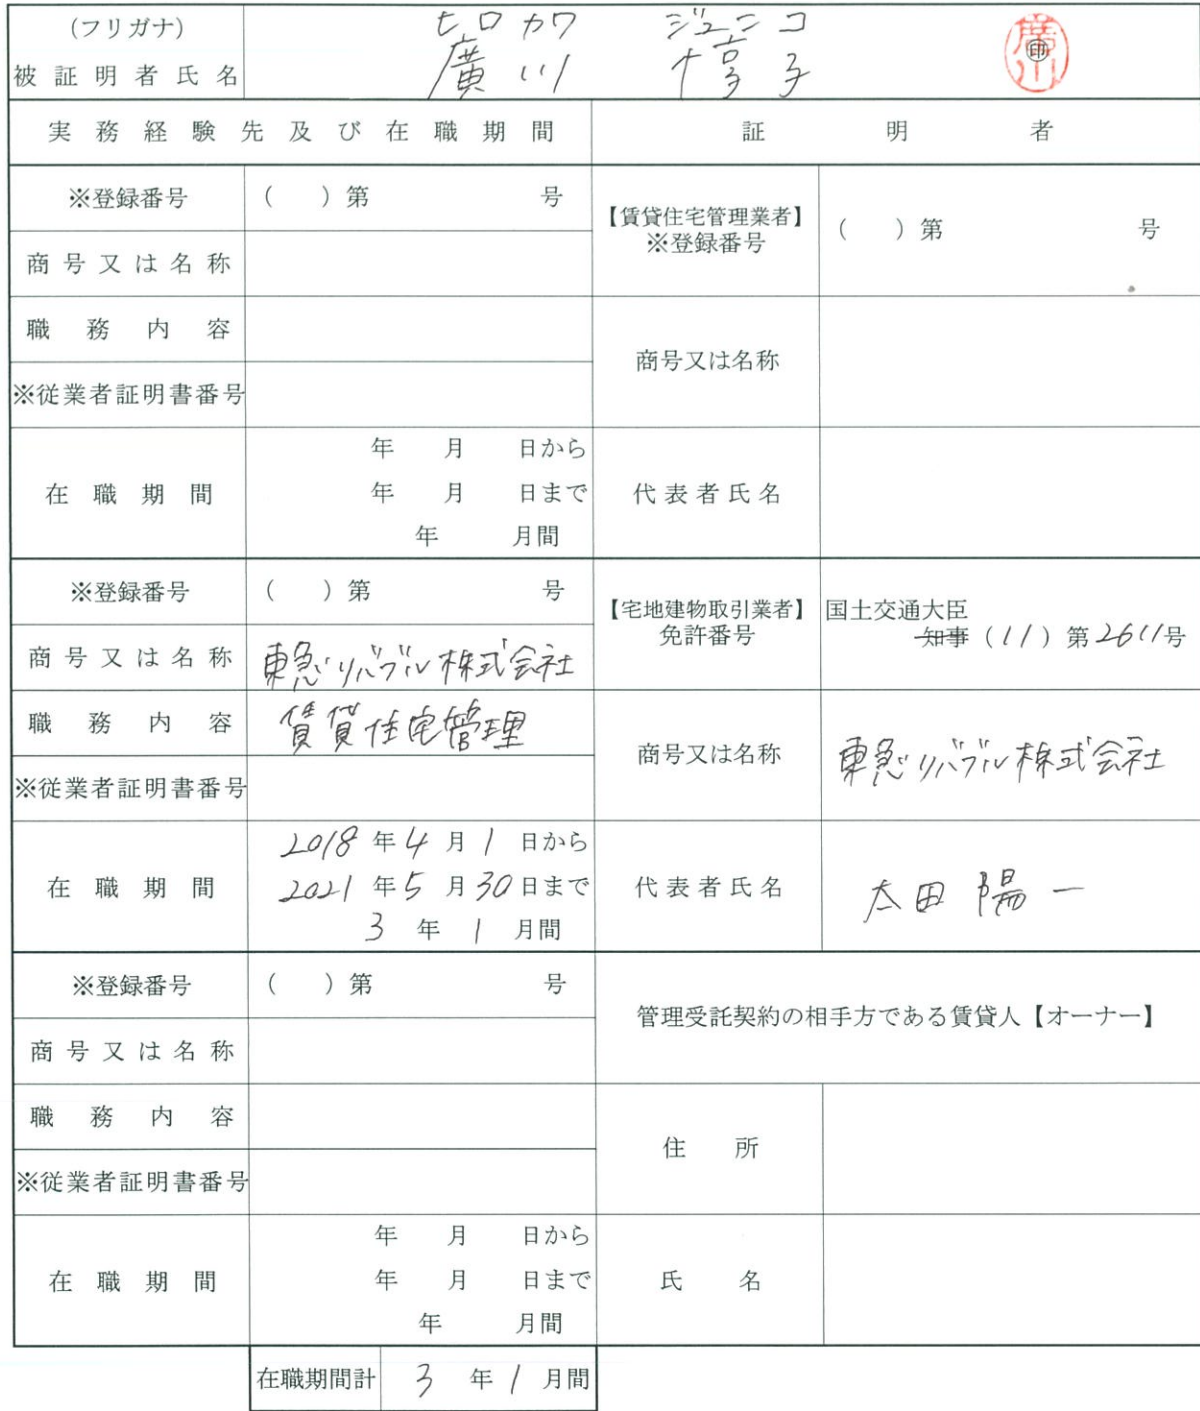 (フリガナ) ヒロカワ ジュンコ
被証明者氏名 廣川 惇子 印 廣川
実務経験先及び在職期間 証明者
※登録番号 ( )第 号
【賃貸住宅管理業者】
※登録番号 ( )第 号
商号又は名称
職務内容
商号又は名称
※従業者証明書番号
在職期間
年 月 日から
年 月 日まで
年 月間
代表者氏名
※登録番号 ( )第 号
【宅地建物取引業者】
免許番号
国土交通大臣
知事 (11)第2611号
商号又は名称 東急リバブル株式会社
職務内容 賃貸住宅管理
商号又は名称 東急リバブル株式会社
※従業者証明書番号
在職期間
2018年4月1日から
2021年5月30日まで
3年1月間
代表者氏名 太田 陽一
※登録番号 ( )第 号
管理受託契約の相手方である賃貸人【オーナー】
商号又は名称
職務内容
住所
※従業者証明書番号
在職期間
年 月 日から
年 月 日まで
年 月間
氏名
在職期間計 3年1月間